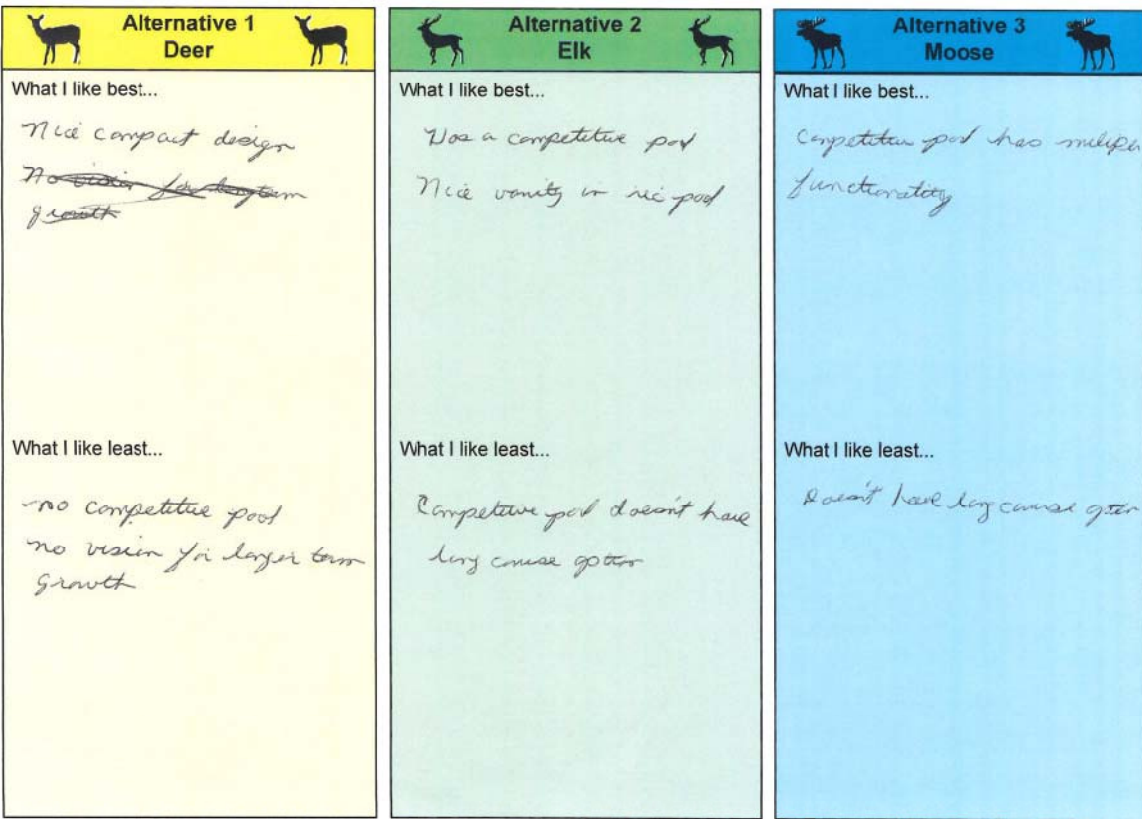 Alternative 1
Deer
What I like best...
Nice compact design
No vision for longterm
growth
What I like least...
no competitive pool
no vision for longer term
growth
Alternative 2
Elk
What I like best...
Has a competitive pool
Nice vanity in rec pool
What I like least...
Competitive pool doesn't have
long course option
Alternative 3
Moose
What I like best...
Competitive pool has
functionality
What I like least...
Doesn't have long course option